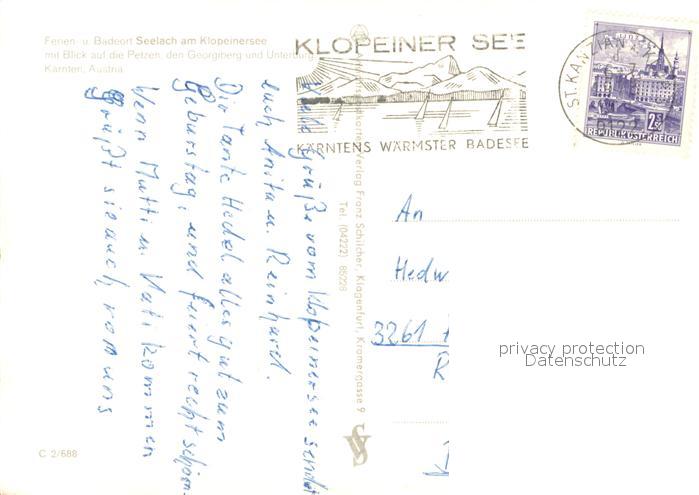 Ferien- u. Badeort Seelach am Klopeinersee
mit Blick auf die Petzen, den Georgiberg und Unterburg
Kärnten, Austria
KLOPEINER SEE
KÄRNTENS WÄRMSTER BADESEE
ST. KANZIAN
2.50
REPUBLIK ÖSTERREICH
Viele Grüße vom Klopeinersee sendet
euch Anita u. Reinhard.
Dir Tante Hedel alles gut zum
Geburstag, und feiert recht schön.
Wenn Mutti u. Vati kommen
Grüßt sie auch von uns
Verlag Franz Schilcher, Klagenfurt, Kramergasse 9
Tel. (04222) 85228
An
Hedw
3261
R
privacy protection
Datenschutz
C 2/688